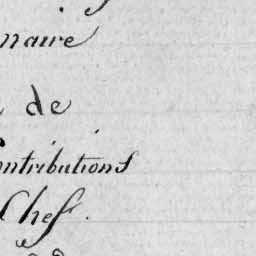 naire
de
ontributions
Chef.